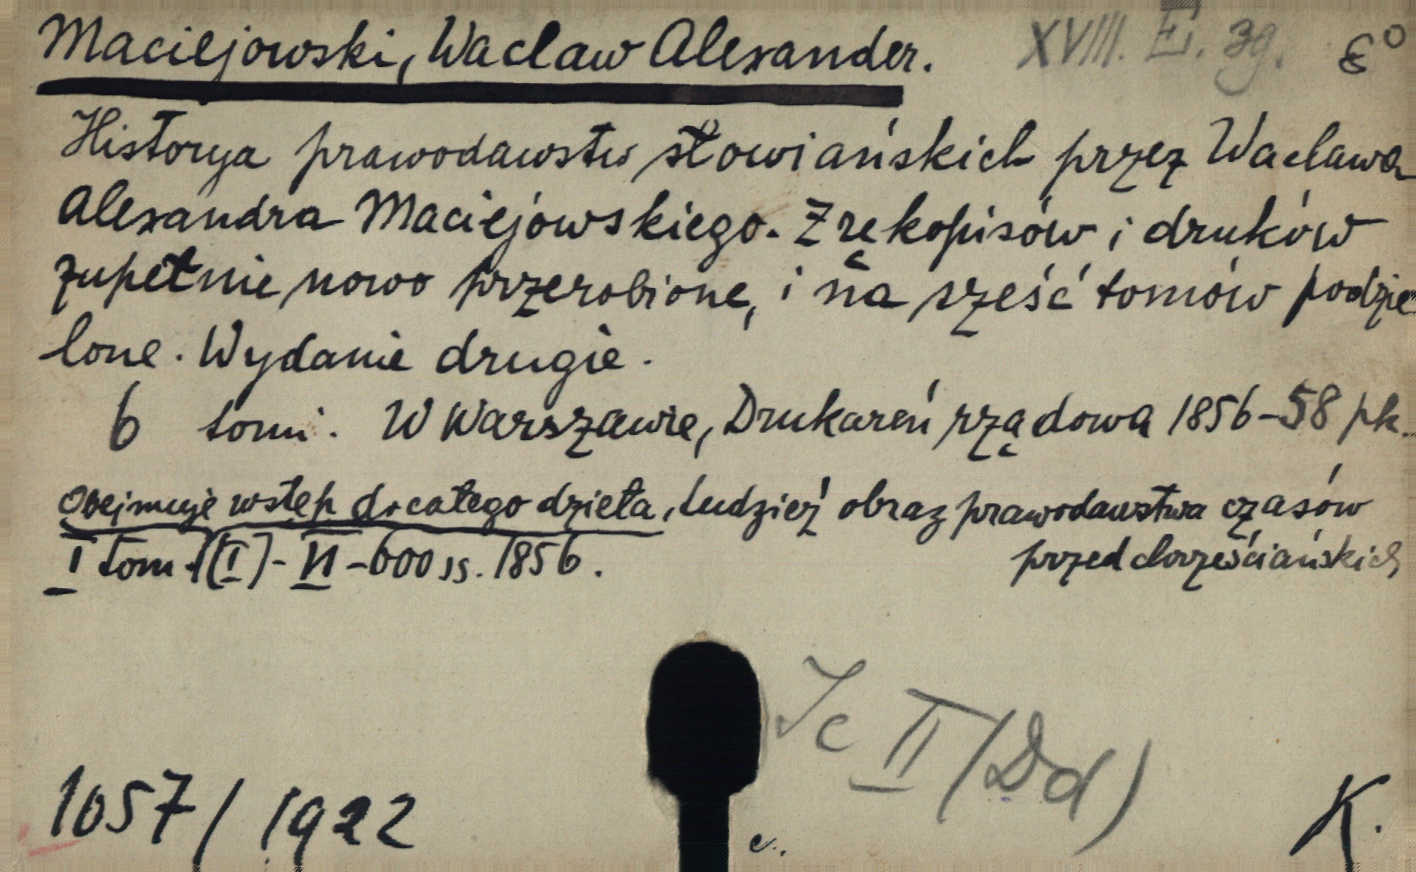 Maciejowski, Wacław Alexander. XVIII. E. 3g. 8°
Historya prawodawstw słowiańskich przez Wacława
Alexandra Maciejowskiego. Z rękopisów i druków
zupełnie nowo przerobione, i na sześć tomów podzie-
lone. Wydanie drugie.
6 tomi. W Warszawie, Drukareń rządowa 1856-58 pk.
Obejmuje wstęp do całego dzieła, tudzież obraz prawodawstwa czasów
przedchrześciańskich
I tom. [(I)-VI-600 ss. 1856.
Jc II (Dd)
1057/1922
c.
K.